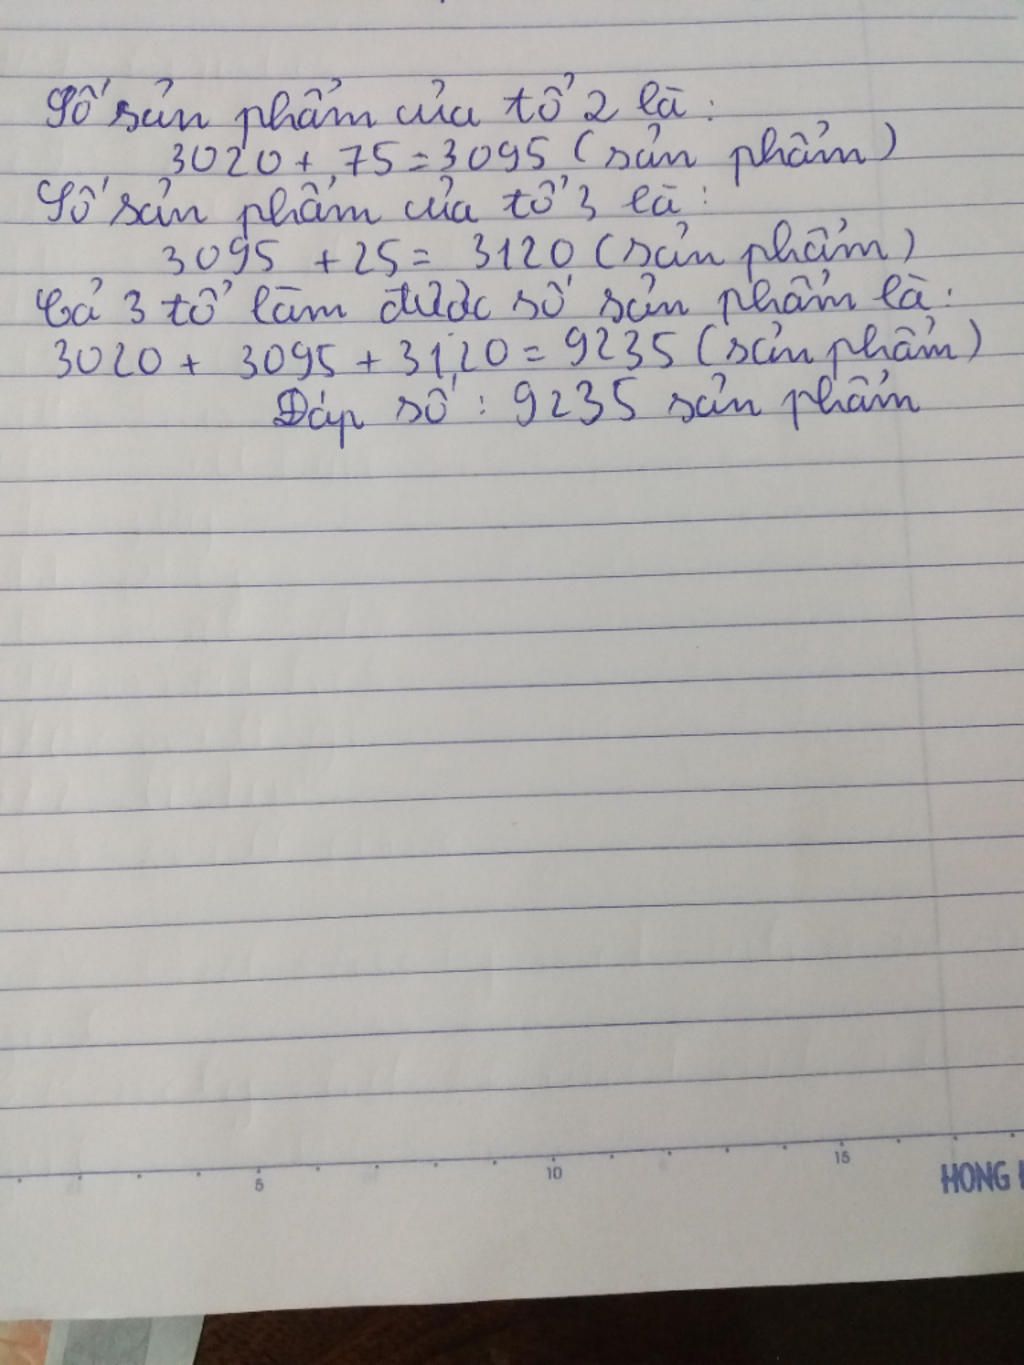 Số sản phẩm của tổ 2 là:
3020 + 75 = 3095 (sản phẩm)
Số sản phẩm của tổ 3 là:
3095 + 25 = 3120 (sản phẩm)
Cả 3 tổ làm được số sản phẩm là:
3020 + 3095 + 3120 = 9235 (sản phẩm)
Đáp số: 9235 sản phẩm
5 10 15
HONG